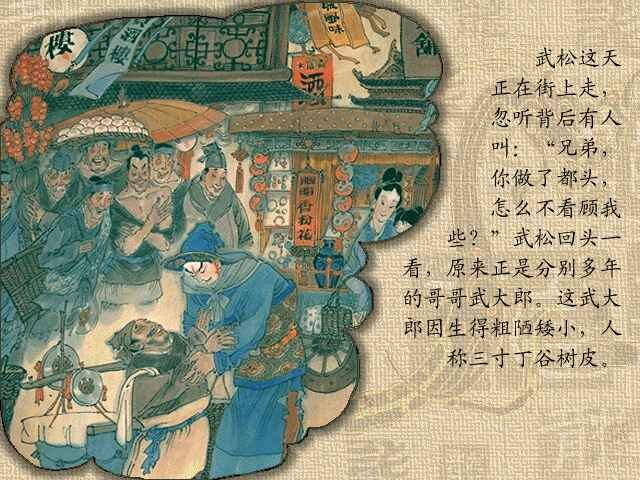 武松这天
正在街上走，
忽听背后有人
叫：“兄弟，
你做了都头，
怎么不看顾我
些？”武松回头一
看，原来正是分别多年
的哥哥武大郎。这武大
郎因生得粗陋矮小，人
称三寸丁谷树皮。
樓
酒樓
風味
酒
舖